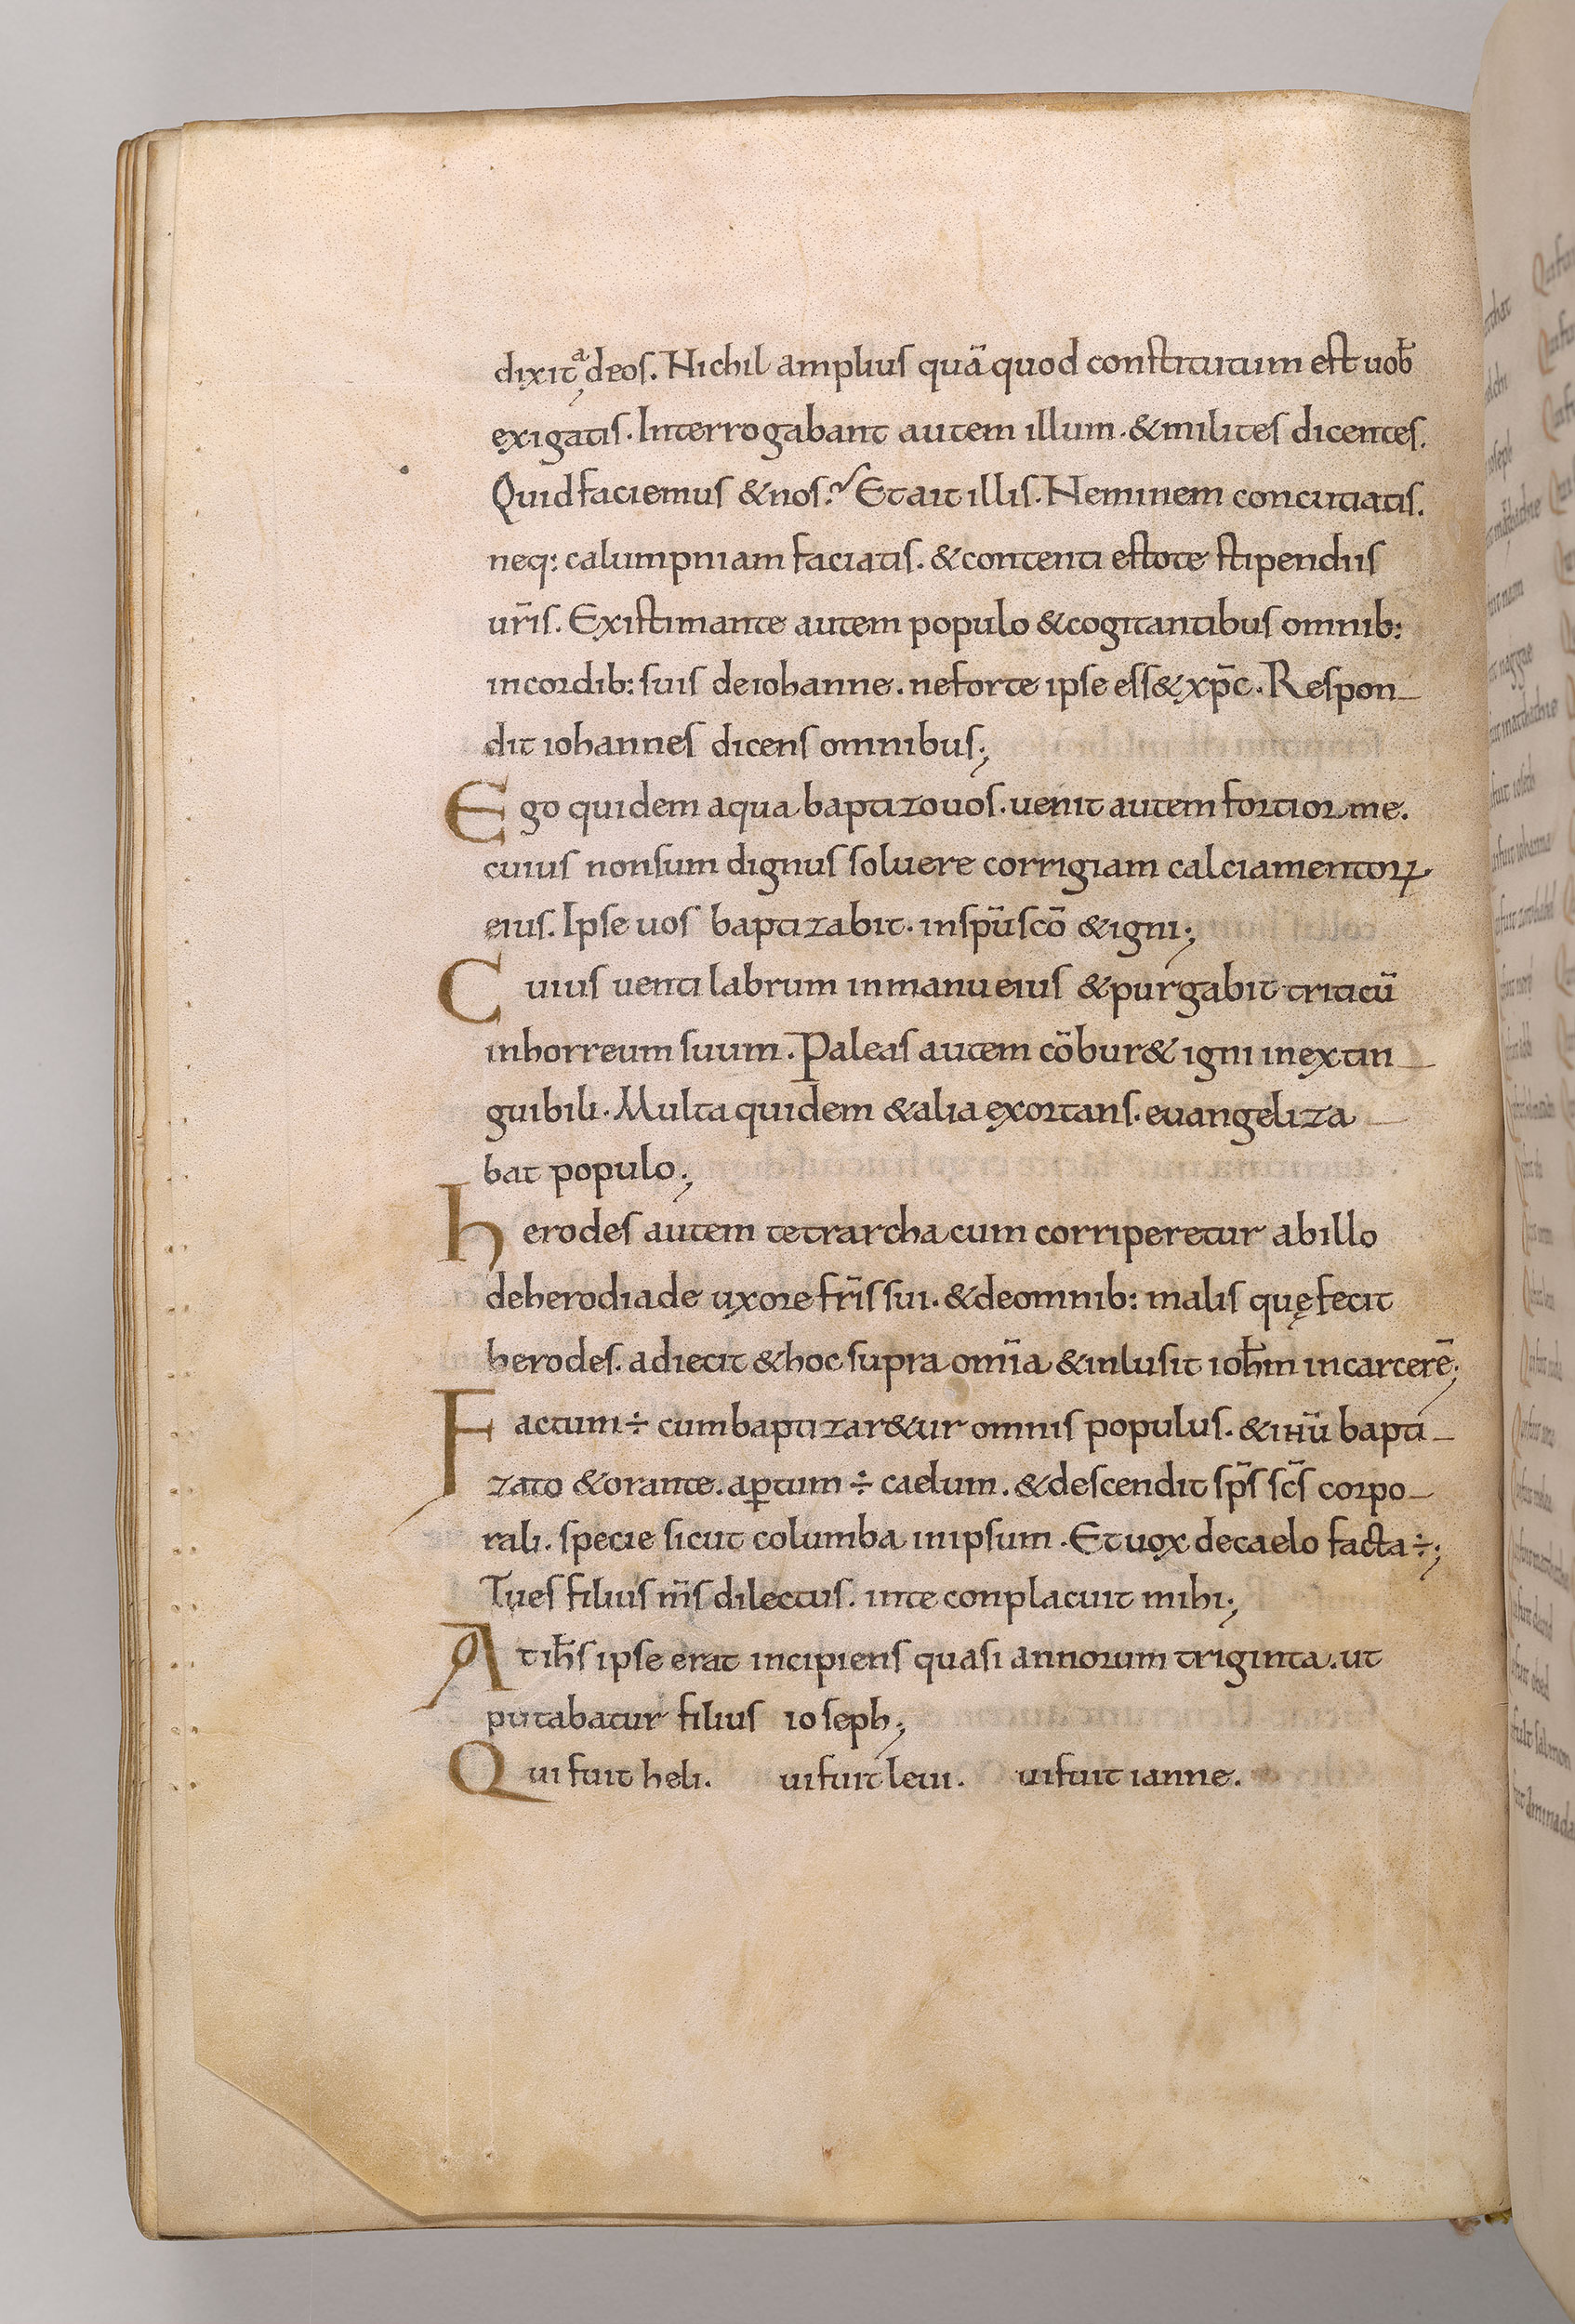 dixit a deos. Nichil amplius quā quod constitutum est uob̄
exigatis. Interrogabant autem illum. & milites dicentes.
Quid faciemus & nos? Et ait illis. Neminem concutiatis.
neq: calumpniam faciatis. & contenti estote stipendiis
ur̄is. Existimante autem populo & cogitantibus omnib:
in cordib: suis de iohanne. ne forte ipse ess& xp̄c. Respon-
dit iohannes dicens omnibus;
Ego quidem aqua baptizo uos. uenit autem fortior me.
cuius non sum dignus soluere corrigiam calciamentoꝝ
eius. Ipse uos baptizabit. in sp̄u sc̄o & igni;
Cuius uentilabrum in manu eius & purgabit triticū
in horreum suum. Paleas autem cōbur& igni inextin-
guibili. Multa quidem & alia exortans. euangeliza-
bat populo;
herodes autem tetrarcha cum corriperetur ab illo
de herodiade uxore fr̄is sui. & de omnib: malis quę fecit
herodes. adiecit & hoc supra om̄ia & inlusit ioh̄m in carcerē;
Factum ÷ cum baptizar&ur omnis populus. & ih̄u bapti-
zato & orante. aꝑtum ÷ caelum. & descendit sp̄s sc̄s corpo-
rali. specie sicut columba in ipsum. Et uox de caelo facta ÷;
Tu es filius m̄s dilectus. in te conplacuit mihi;
At ih̄s ipse erat incipiens quasi annorum triginta. ut
putabatur filius ioseph;
Qui fuit heli. ui fuit leui. ui fuit ianne.